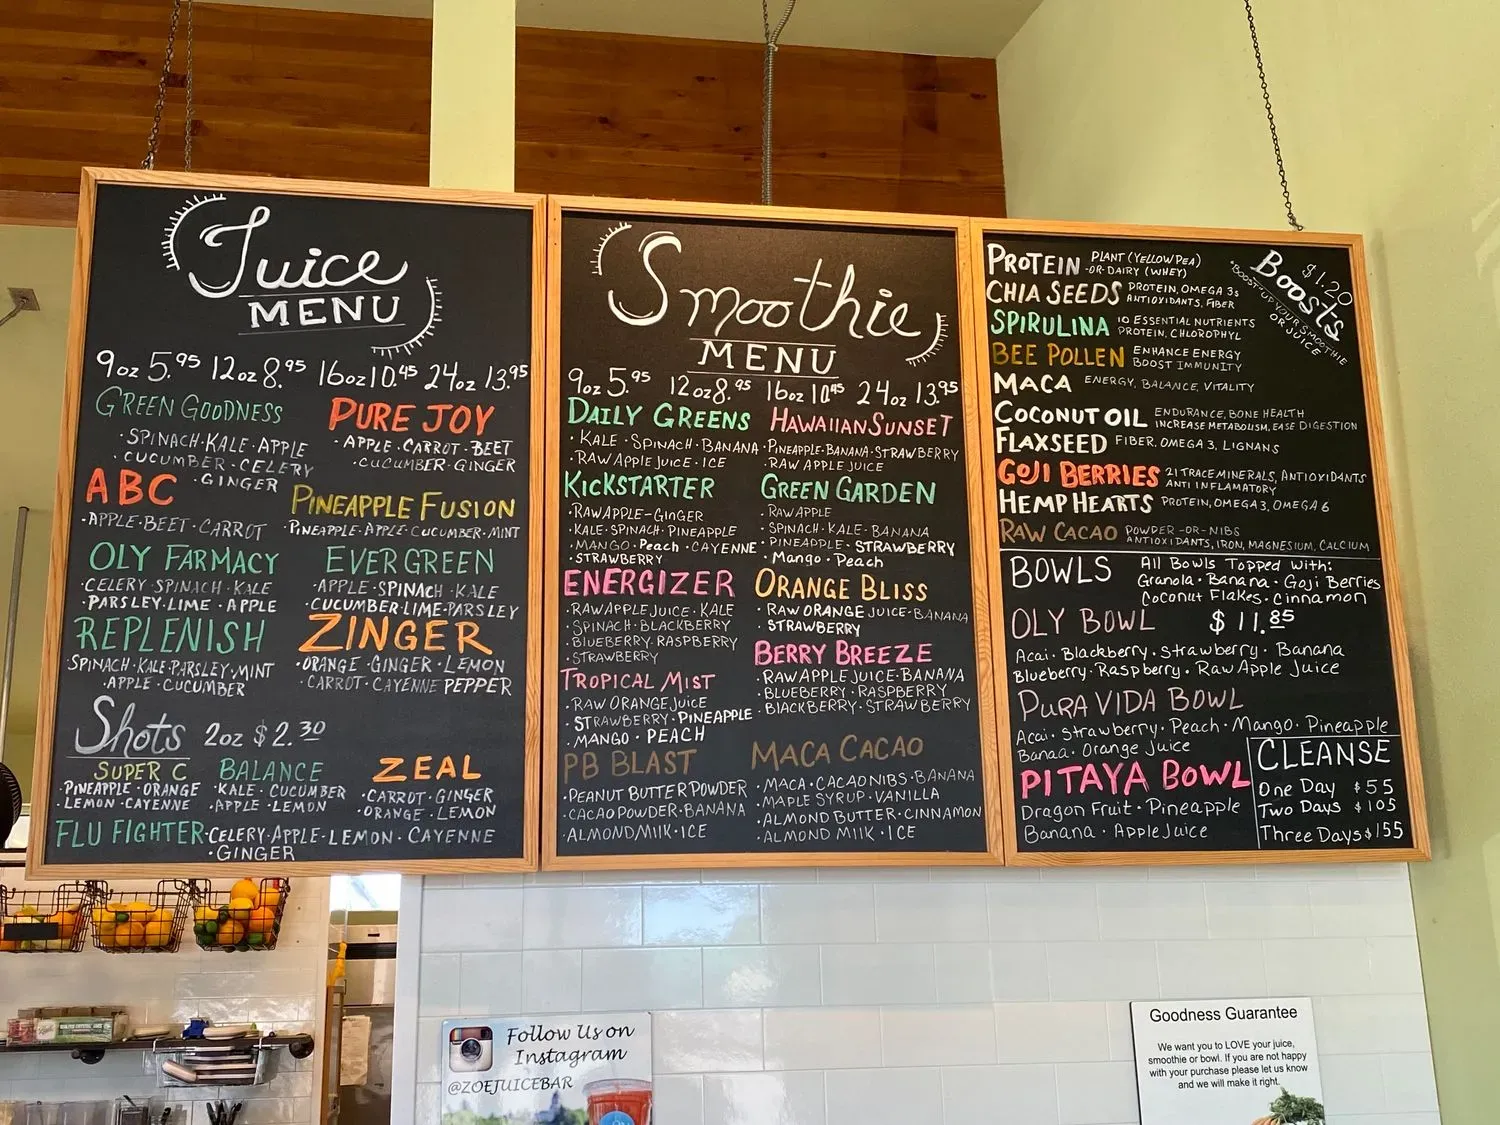 Juice
MENU
9oz 5.95 12oz 8.95 16oz 10.45 24oz 13.95
GREEN GOODNESS
·SPINACH·KALE·APPLE
·CUCUMBER·CELERY
·GINGER
PURE JOY
·APPLE·CARROT·BEET
·CUCUMBER·GINGER
ABC
·APPLE·BEET·CARROT
PINEAPPLE FUSION
·PINEAPPLE·APPLE·CUCUMBER·MINT
OLY FARMACY
·CELERY·SPINACH·KALE
·PARSLEY·LIME·APPLE
EVERGREEN
·APPLE·SPINACH·KALE
·CUCUMBER·LIME·PARSLEY
REPLENISH
SPINACH·KALE·PARSLEY·MINT
·APPLE·CUCUMBER
ZINGER
·ORANGE·GINGER·LEMON
·CARROT·CAYENNE PEPPER
Shots 2oz $2.30
SUPER C
PINEAPPLE·ORANGE
·LEMON·CAYENNE
BALANCE
·KALE·CUCUMBER
·APPLE·LEMON
ZEAL
·CARROT·GINGER
·ORANGE·LEMON
FLU FIGHTER·CELERY·APPLE·LEMON·CAYENNE
·GINGER
Smoothie
MENU
9oz 5.95 12oz 8.95 16oz 10.45 24oz 13.95
DAILY GREENS
·KALE·SPINACH·BANANA
·RAW APPLE JUICE·ICE
HAWAIIAN SUNSET
·PINEAPPLE·BANANA·STRAWBERRY
·RAW APPLE JUICE
KICKSTARTER
·RAW APPLE-GINGER
·KALE·SPINACH·PINEAPPLE
·MANGO·Peach·CAYENNE
·STRAWBERRY
GREEN GARDEN
·RAW APPLE
·SPINACH·KALE·BANANA
·PINEAPPLE·STRAWBERRY
·Mango·Peach
ENERGIZER
·RAW APPLE JUICE·KALE
·SPINACH·BLACKBERRY
·BLUEBERRY·RASPBERRY
·STRAWBERRY
ORANGE BLISS
·RAW ORANGE JUICE·BANANA
·STRAWBERRY
BERRY BREEZE
·RAW APPLE JUICE·BANANA
·BLUEBERRY·RASPBERRY
·BLACKBERRY·STRAWBERRY
TROPICAL MIST
·RAW ORANGE JUICE
·STRAWBERRY·PINEAPPLE
·MANGO·PEACH
PB BLAST
·PEANUT BUTTER POWDER
·CACAO POWDER·BANANA
·ALMOND MILK·ICE
MACA CACAO
·MACA·CACAO NIBS·BANANA
·MAPLE SYRUP·VANILLA
·ALMOND BUTTER·CINNAMON
·ALMOND MILK·ICE
Boosts
$1.20
*BOOST UP YOUR SMOOTHIE
OR JUICE
PROTEIN PLANT (YELLOW PEA)
-OR- DAIRY (WHEY)
CHIA SEEDS PROTEIN, OMEGA 3s
ANTIOXIDANTS, FIBER
SPIRULINA 10 ESSENTIAL NUTRIENTS
PROTEIN, CHLOROPHYL
BEE POLLEN ENHANCE ENERGY
BOOST IMMUNITY
MACA ENERGY, BALANCE, VITALITY
COCONUT OIL ENDURANCE, BONE HEALTH
INCREASE METABOLISM, EASE DIGESTION
FLAXSEED FIBER, OMEGA 3, LIGNANS
GOJI BERRIES 21 TRACE MINERALS, ANTIOXIDANTS
ANTI INFLAMATORY
HEMP HEARTS PROTEIN, OMEGA 3, OMEGA 6
RAW CACAO POWDER -OR- NIBS
ANTIOXIDANTS, IRON, MAGNESIUM, CALCIUM
BOWLS All Bowls Topped with:
Granola·Banana·Goji Berries
Coconut Flakes·Cinnamon
OLY BOWL $11.85
Acai·Blackberry·Strawberry·Banana
Blueberry·Raspberry·Raw Apple Juice
PURA VIDA BOWL
Acai·Strawberry·Peach·Mango·Pineapple
Banaa·Orange Juice
PITAYA BOWL
Dragon Fruit·Pineapple
Banana·Apple Juice
CLEANSE
One Day $55
Two Days $105
Three Days $155
Follow Us on
Instagram
@ZOEJUICEBAR
Goodness Guarantee
We want you to LOVE your juice,
smoothie or bowl. If you are not happy
with your purchase please let us know
and we will make it right.